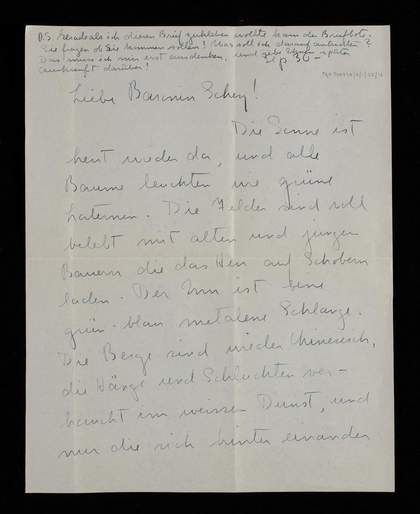 P.S. Gerade als ich diesen Brief zukleben wollte kam der Briefbote.
Sie fragen ob Sie kommen sollen! Was soll ich darauf antworten?
Das muss ich mir erst ausdenken, und gebe Ihnen später
Auskunft darüber!
Liebe Baronin Schey!
Die Sonne ist
heut wieder da, und alle
Bäume leuchten wie grüne
Laternen. Die Felder sind voll
belebt mit alten und jungen
Bauern die das Heu auf Schobern
laden. Der Inn ist eine
grün-blau metalene Schlange.
Die Berge sind wieder Chinesisch,
die Hänge und Schluchten ver-
haucht im weissen Dunst, und
nur die sich hinter einander